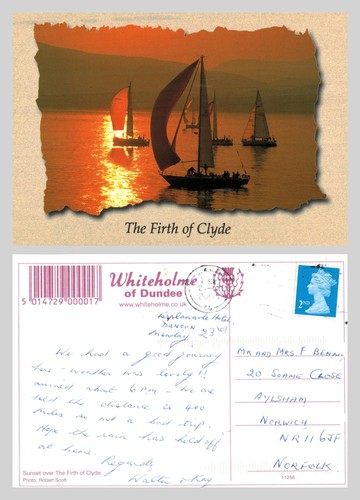 The Firth of Clyde
5 014729 000017
Whiteholme
of Dundee
www.whiteholme.co.uk
2ND
Esplanade Hotel
DUNOON
Monday 23rd
We had a good journey
here - weather was lovely!!
arrived about 6pm - we are
told the distance is 400
miles so not a bad trip.
Hope the rain has held off
at home.
Regards
Walter & Kay
MR AND MRS F
20 SOAME CLOSE
AYLSHAM
NORWICH
NR11 6JF
NORFOLK
Sunset over The Firth of Clyde
Photo: Robert Scott
11256